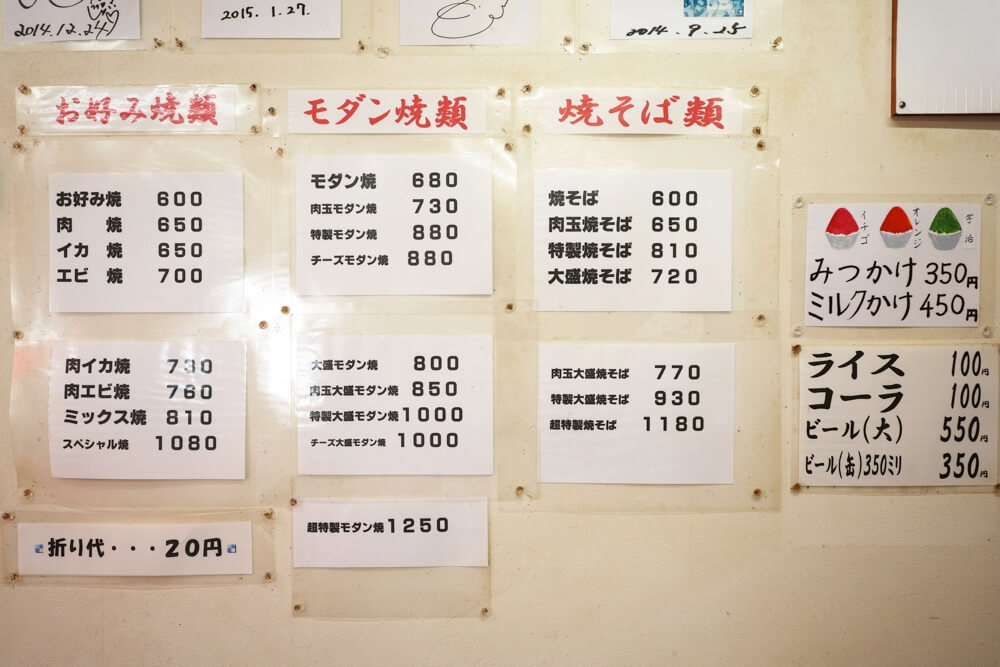 2014.12.24
2015.1.27.
2014.9.25
お好み焼類
お好み焼 600
肉 焼 650
イカ 焼 650
エビ 焼 700
肉イカ焼 730
肉エビ焼 760
ミックス焼 810
スペシャル焼 1080
折り代・・・20円
モダン焼類
モダン焼 680
肉玉モダン焼 730
特製モダン焼 880
チーズモダン焼 880
大盛モダン焼 800
肉玉大盛モダン焼 850
特製大盛モダン焼 1000
チーズ大盛モダン焼 1000
超特製モダン焼 1250
焼そば類
焼そば 600
肉玉焼そば 650
特製焼そば 810
大盛焼そば 720
肉玉大盛焼そば 770
特製大盛焼そば 930
超特製焼そば 1180
イチゴ
オレンジ
宇治
みつかけ 350円
ミルクかけ 450円
ライス 100円
コーラ 100円
ビール(大) 550円
ビール(缶)350ミリ 350円